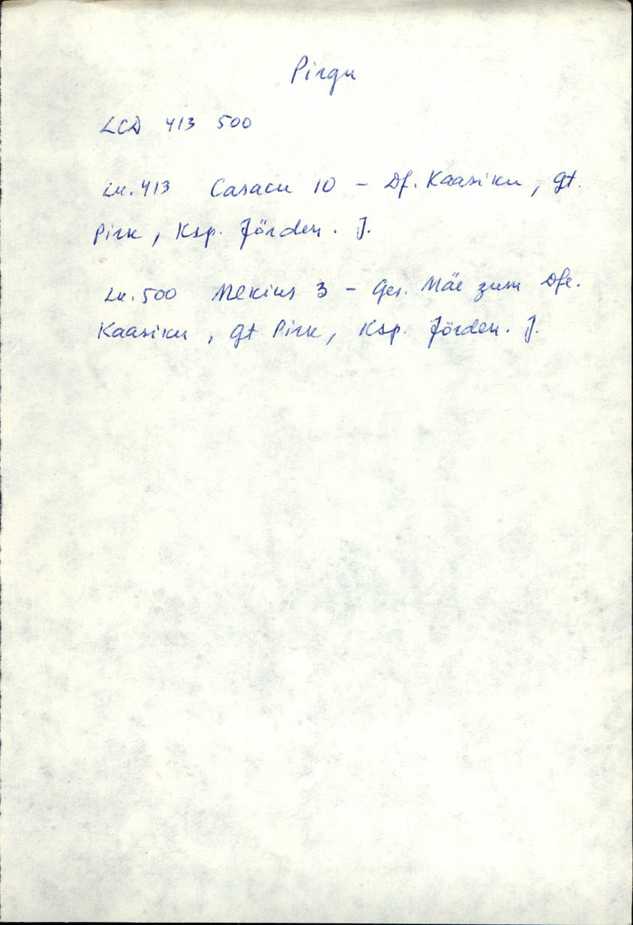 Pirgu
LCD 413 500
Lk. 413 Casacu 10 - Df. Kaasiku, Gt.
Pirk, Ksp. Jörden. J.
Lk. 500 Mekius 3 - Ges. Mäe zum Dfe.
Kaasiku, Gt Pirk, Ksp. Jörden. J.